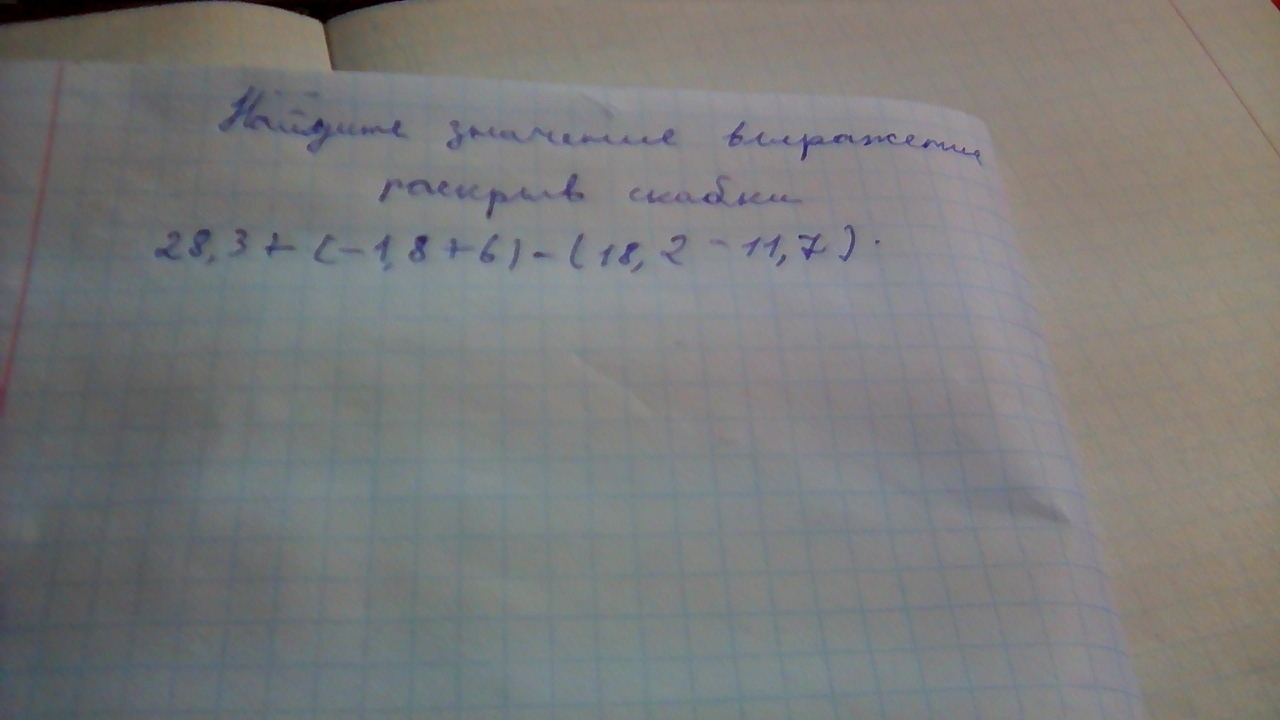 Найдите значение выражения
раскрыв скабки
28,3 + (-1,8 + 6) - (18,2 - 11,7).